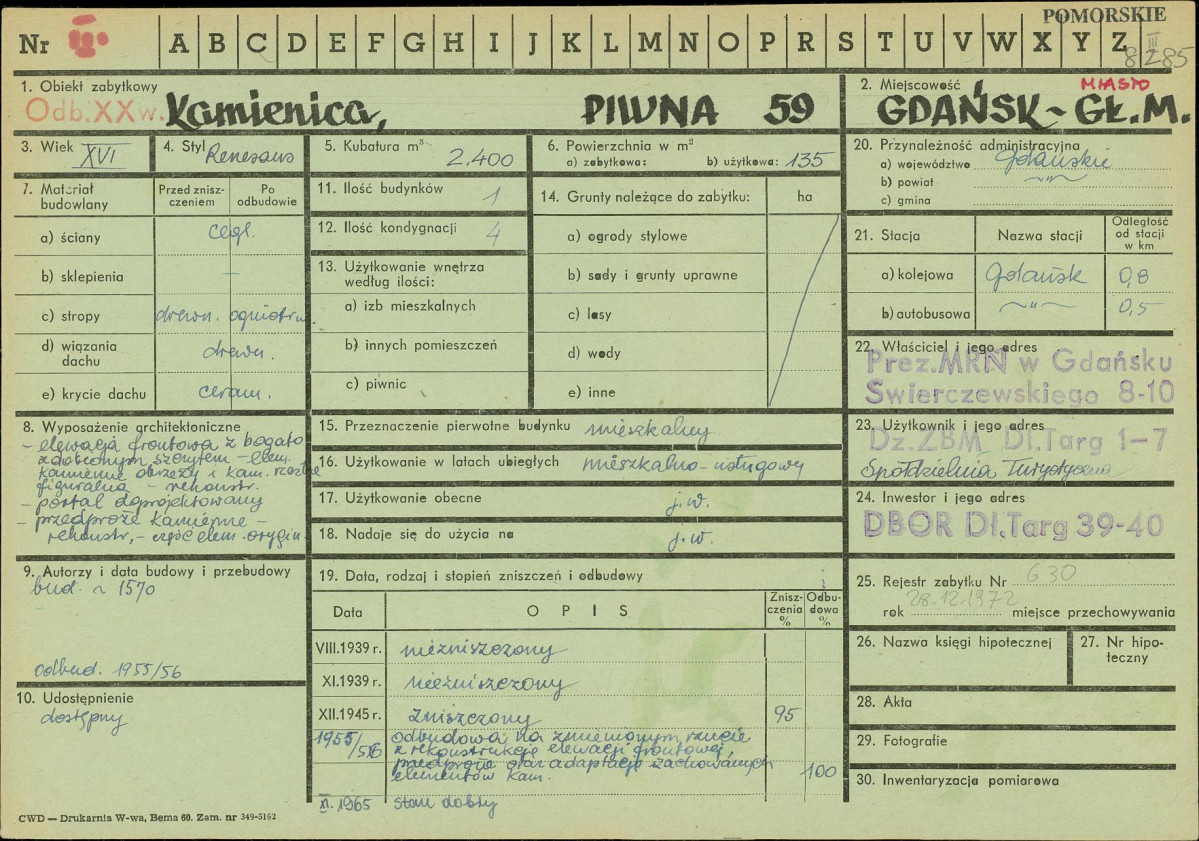 POMORSKIE
Nr A B C D E F G H I J K L M N O P R S T U V W X Y Z
III
8285
1. Obiekt zabytkowy
Odb. XX w. Kamienica, PIWNA 59
2. Miejscowość MIASTO
GDAŃSK - GŁ. M.
3. Wiek XVI
4. Styl Renesans
5. Kubatura m³ 2.400
6. Powierzchnia w m²
a) zabytkowa: b) użytkowa: 135
7. Materiał budowlany
Przed zniszczeniem
Po odbudowie
a) ściany cegl.
b) sklepienia –
c) stropy drewn. ogniotrw
d) wiązania dachu drewn.
e) krycie dachu ceram.
8. Wyposażenie architektoniczne
- elewacja frontowa z bogato
zdobionym szczytem – elem.
kamienne obrzeży i kam. rzeźba
figuralna – rekonstr.
- portal doprojektowany
- przedproże kamienne –
rekonstr, – część elem. orygin.
9. Autorzy i data budowy i przebudowy
bud. ~ 1570
odbud. 1955/56
10. Udostępnienie
dostępny
11. Ilość budynków 1
12. Ilość kondygnacji 4
13. Użytkowanie wnętrza
według ilości:
a) izb mieszkalnych
b) innych pomieszczeń
c) piwnic
14. Grunty należące do zabytku: ha
a) ogrody stylowe
b) sady i grunty uprawne
c) lasy
d) wody
e) inne
15. Przeznaczenie pierwotne budynku mieszkalny
16. Użytkowanie w latach ubiegłych mieszkalno-usługowy
17. Użytkowanie obecne j.w.
18. Nadaje się do użycia na j.w.
19. Data, rodzaj i stopień zniszczeń i odbudowy
Data OPIS Zniszczenia % Odbudowa %
VIII.1939 r. niezniszczony
XI.1939 r. niezniszczony
XII.1945 r. Zniszczony 95
1955/56 odbudowa na zmienionym rzucie
z rekonstrukcją elewacji frontowej,
przedproże oraz adaptacja zachowanych
elementów kam. 100
XI.1965 stan dobry
20. Przynależność administracyjna
a) województwo Gdańskie
b) powiat –"–
c) gmina
21. Stacja Nazwa stacji Odległość od stacji w km
a) kolejowa Gdańsk 0,8
b) autobusowa –"– 0,5
22. Właściciel i jego adres
Prez. MRN w Gdańsku
Swierczewskiego 8-10
23. Użytkownik i jego adres
Dz. ZBM Dł. Targ 1-7
Spółdzielnia Turystyczna
24. Inwestor i jego adres
DBOR Dł. Targ 39-40
25. Rejestr zabytku Nr 630
rok 28.12.1972 miejsce przechowywania
26. Nazwa księgi hipotecznej
27. Nr hipoteczny
28. Akta
29. Fotografie
30. Inwentaryzacja pomiarowa
CWD — Drukarnia W-wa, Bema 60. Zam. nr 349-5162